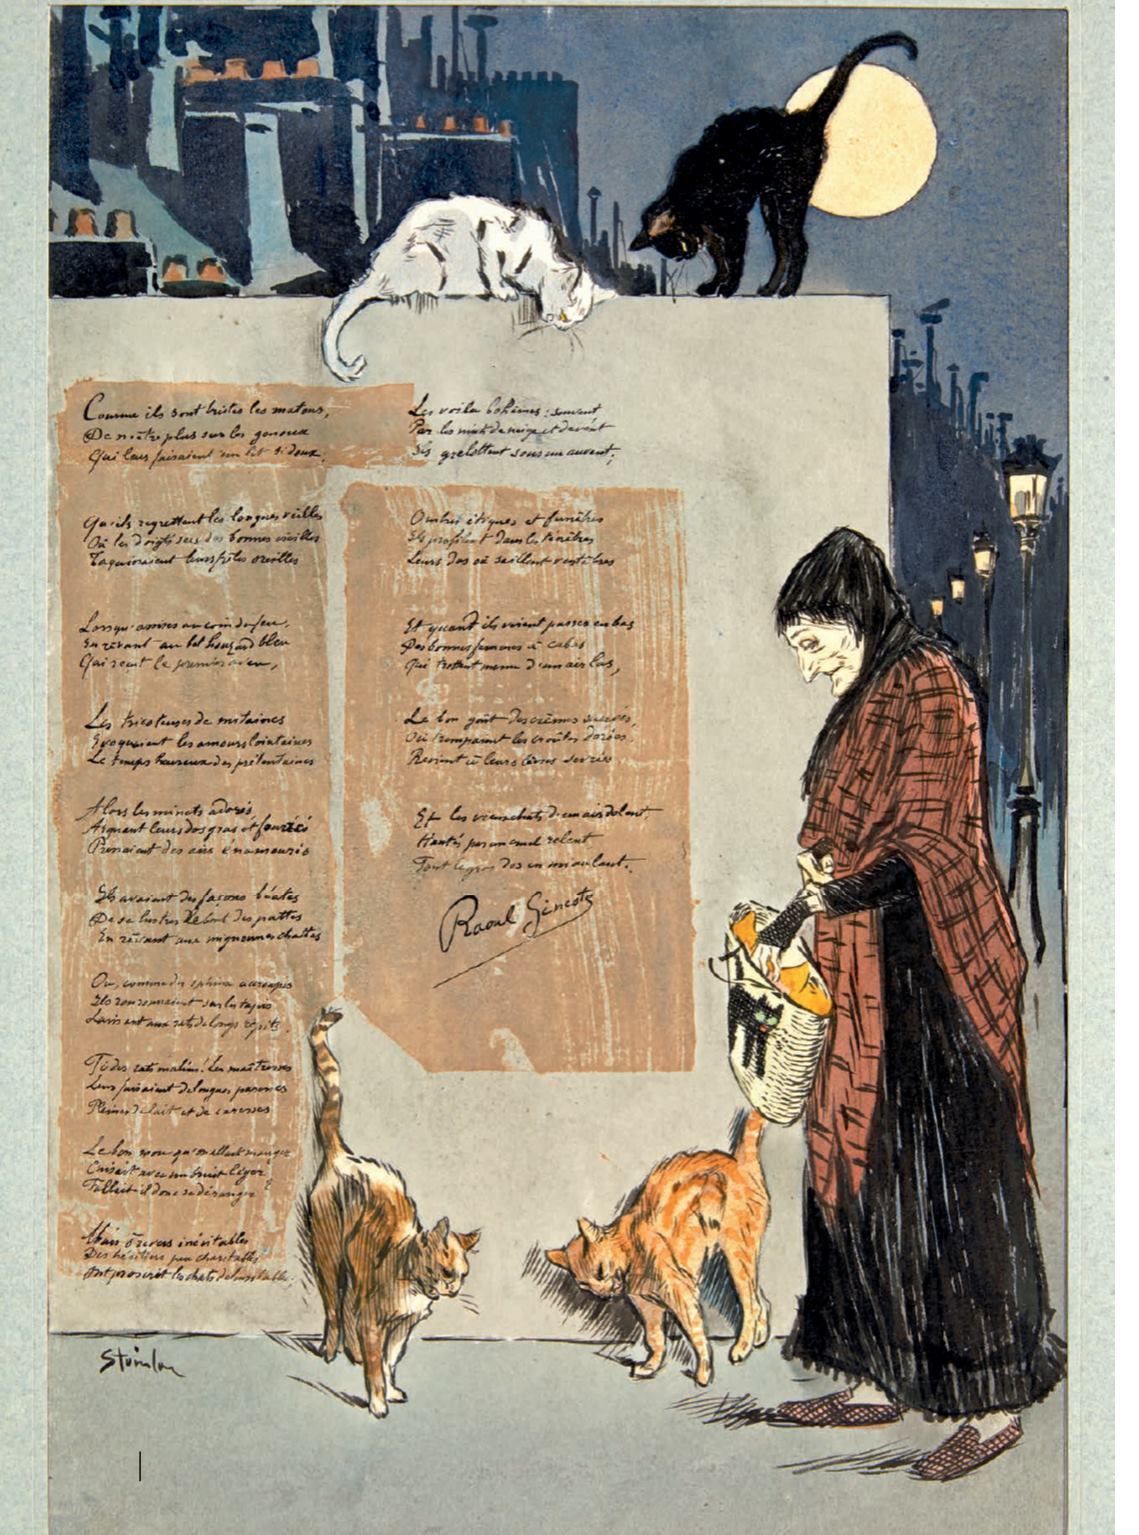 Comme ils sont tristes les matous,
De n'être plus sur les genoux
Qui leur faisaient un lit si doux,
Qu'ils regrettent les longues veilles
Où les doigts secs des bonnes vieilles
Taquinaient leurs frêles oreilles
Lorsqu'assises au coin du feu,
En rêvant au bel houzard bleu
Qui reçut le premier aveu,
Les tricoteuses de mitaines
Evoquaient les amours lointaines
Le temps heureux des prétentaines
Alors les minets adorés
Arquant leurs dos gras et fourrés
Prenaient des airs énamourés
Ils avaient des façons béates
De se lustrer le bout des pattes
En rêvant aux mignonnes chattes
Ou, comme des sphinx accroupis
Ils ronronnaient sur les tapis
Laissant aux rats de longs répits.
des rats malins! Les maîtresses
Leur faisaient de longues paresses
Pleines de lait et de caresses
Le bon mou qu'on allait manger
Cuisait avec un bruit léger
Fallait il donc se déranger?
Mais ô revers inévitables
Des héritiers peu charitables
Ont proscrit les chats
Les voilà bohèmes: souvent
Par les nuits de neige et de vent
Ils grelottent sous un auvent;
Ombres étiques et funèbres
Ils profilent dans les ténèbres
Leurs dos où saillent vertèbres
Et quand ils voient passer en bas
Des bonnes femmes à cabas
Qui trottent menu d'un air las,
Le bon goût des crèmes sucrées,
Où trempaient les croûtes dorées
Revient à leurs lèvres sevrées
Et les vieux chats d'un air dolent,
Hantés par un mal
Font le gros dos en miaulant.
Raoul Gineste
Steinlen